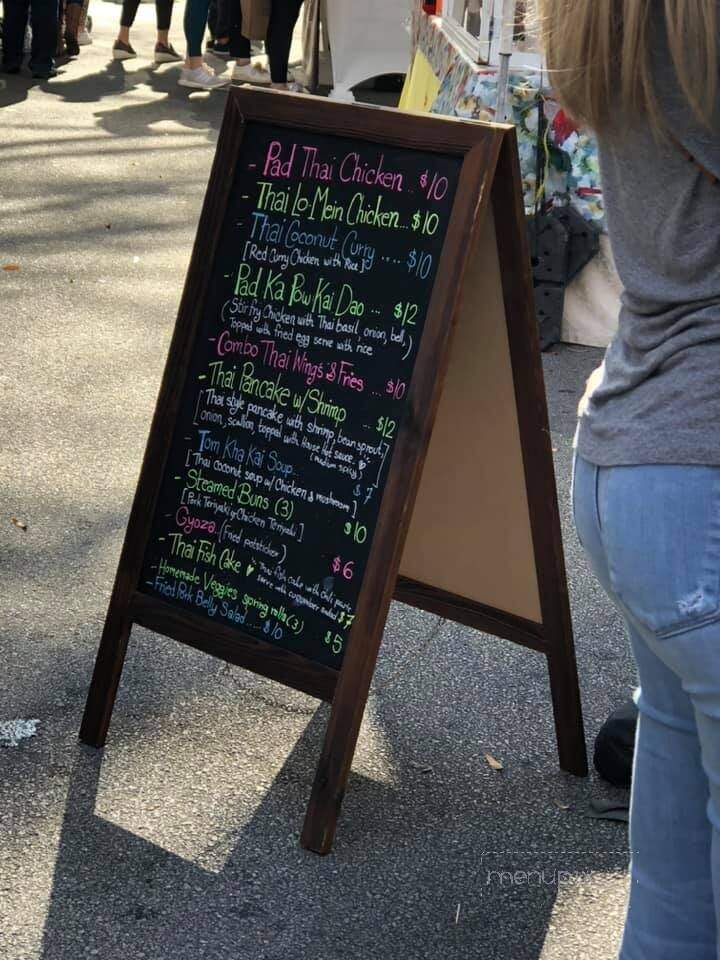 - Pad Thai Chicken .. $10
- Thai Lo-Mein Chicken... $10
- Thai Coconut Curry .... $10
[Red Curry Chicken with Rice]
- Pad Ka Pow Kai Dao ... $12
(Stir fry Chicken with Thai basil, onion, bell,
topped with fried egg serve with rice)
- Combo Thai Wings & Fries ... $10
- Thai Pancake w/ Shrimp ... $12
[Thai style pancake with shrimp, bean sprout,
onion, scallion, topped with House Hot sauce,
(medium spicy)]
- Tom Kha Kai Soup... $7
[Thai coconut soup w/ Chicken & mushroom]
- Steamed Buns (3) $10
[Pork Teriyaki or Chicken Teriyaki]
- Gyoza.. (Fried potsticker) $6
- Thai Fish Cake Thai fish cake with chili paste
serve with cucumber $7
- Homemade Veggies spring rolls (3) $5
- Fried Pork Belly Salad .... $10
menu